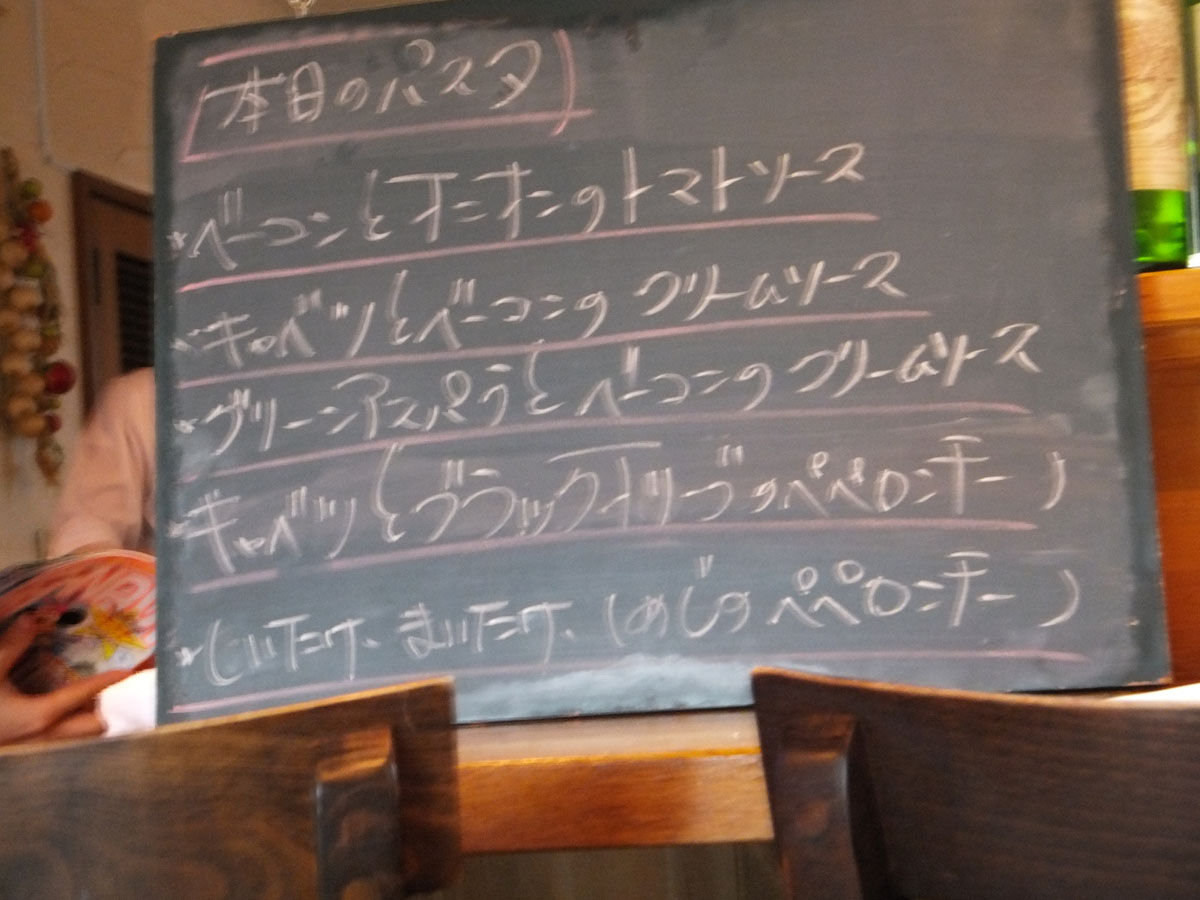 本日のパスタ
*ベーコンとオニオンのトマトソース
*キャベツとベーコンのクリームソース
*グリーンアスパラとベーコンのクリームソース
*キャベツとブラックオリーブのペペロンチーノ
*しいたけ、まいたけ、しめじのペペロンチーノ